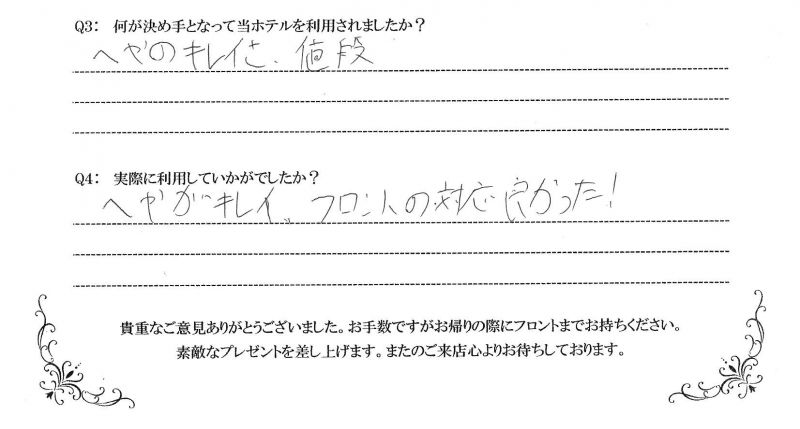 Q3: 何が決め手となって当ホテルを利用されましたか?
へやのキレイさ、値段
Q4: 実際に利用していかがでしたか?
へやがキレイ、フロントの対応良かった!
貴重なご意見ありがとうございました。お手数ですがお帰りの際にフロントまでお持ちください。
素敵なプレゼントを差し上げます。またのご来店心よりお待ちしております。